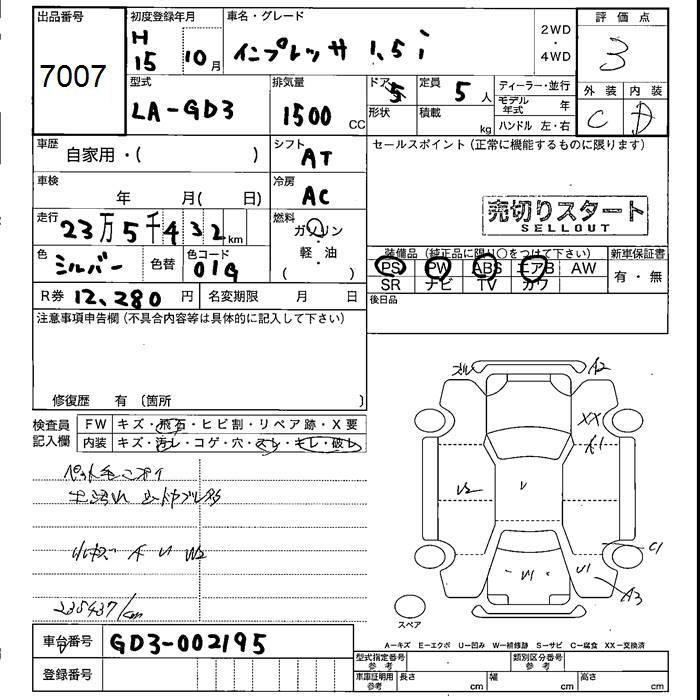 出品番号 初度登録年月 車名・グレード 評価点
H 15 10月 インプレッサ 1.5i 2WD・4WD 3
7007
型式 排気量 ドア 定員 ディーラー・並行 外装 内装
LA-GD3 1500 CC 5 5人 モデル年式 年 C D
形状 積載 kg ハンドル 左・右
車歴 自家用・( ) シフト AT セールスポイント(正常に機能するものに限ります)
車検 年 月( 日) 冷房 AC
売切りスタート
SELLOUT
走行 23万5千432km 燃料 ガソリン・軽・油 ( )
装備品(純正品に限り○をつけて下さい) 新車保証書
色 シルバー 色替 色コード 01G
PS PW ABS エアB AW 有・無
SR ナビ TV カワ
R券 12,280円 名変期限 月 日 後日品
注意事項申告欄(不具合内容等は具体的に記入して下さい)
修復歴 有(箇所 )
検査員記入欄 FW キズ・飛石・ヒビ割・リペア跡・X要
内装 キズ・汚レ・コゲ・穴・スレ・キレ・破レ
ペット毛ニオイ
A2
XX
U2 V
C1
V1 U1
A3
235437km
スペア
A-キズ E-エクボ U-凹み W-補修跡 S-サビ C-腐食 XX-交換済
車台番号 GD3-002195
型式指定番号 参考 類別区分番号 参考
登録番号 車庫証明用 参考 長さ cm 幅 cm 高さ cm